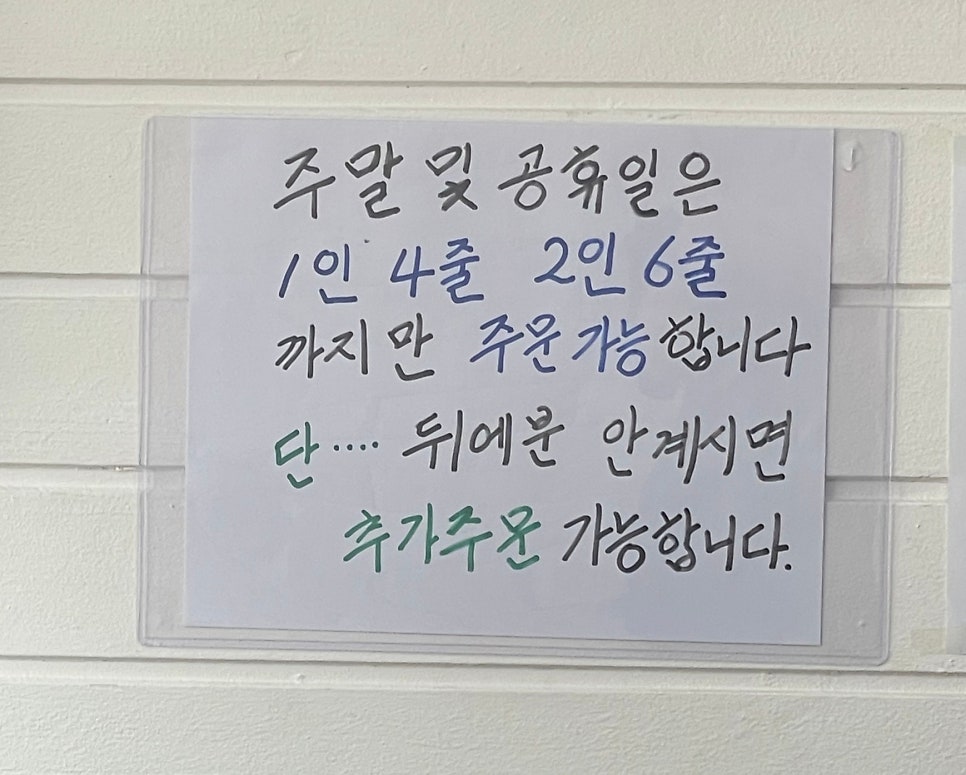 주말 및 공휴일은
1인 4줄 2인 6줄
까지만 주문가능합니다
단···· 뒤에분 안계시면
추가주문 가능합니다.